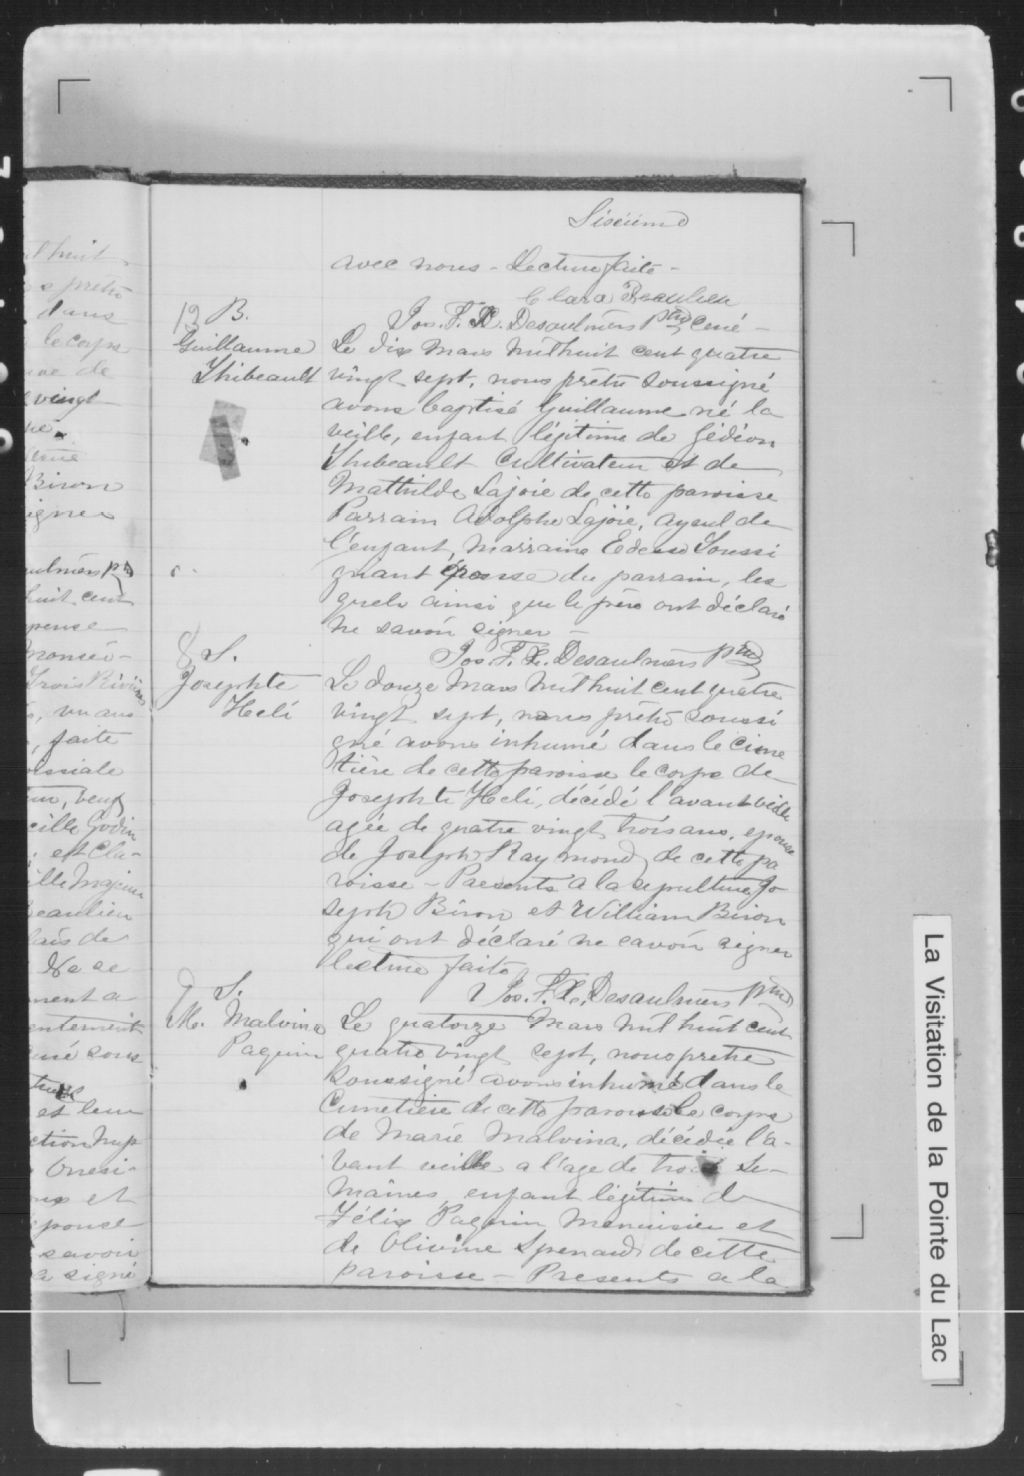 Sixième
avec nous - Lecture faite -
Clara Beaulieu
Jos. F. X. Desaulniers ptre Curé -
13 B.
Guillaume
Thibeault
Le dix Mars mil huit cent quatre
vingt sept, nous prêtre soussigné
avons baptisé Guillaume né la
veille, enfant légitime de Gédéon
Thibeault Cultivateur et de
Mathilde Lajoie de cette paroisse
Parrain Adolphe Lajoie, ayeul de
l'enfant, Marraine Soussi
gnant épouse du parrain, les
quels ainsi que le père ont déclaré
ne savoir signer -
Jos. F. X. Desaulniers ptre
8 S.
Josephte
Heli
Le douze Mars mil huit cent quatre
vingt sept, nous prêtre soussi
gné avons inhumé dans le cime
tière de cette paroisse le corps de
Josephte Heli, décédé l'avant veille
agée de quatre vingt trois ans, epouse
de Joseph Raymond de cette pa
roisse - Presents a la sepulture Jo
seph Biron et William Biron
qui ont déclaré ne savoir signer
lecture faite
Jos. F. X. Desaulniers ptre
9 S.
M. Malvina
Paquin
Le quatorze Mars mil huit cent
quatre vingt sept, nous pretre
soussigné avons inhumé dans le
Cimetière de cette paroisse le corps
de Marie Malvina, décédée l'a-
vant veille a l'age de trois Se-
maines, enfant légitime de
Félix Paquin Menuisier et
de Olivine Spenard de cette
paroisse - Presents a la
La Visitation de la Pointe du Lac